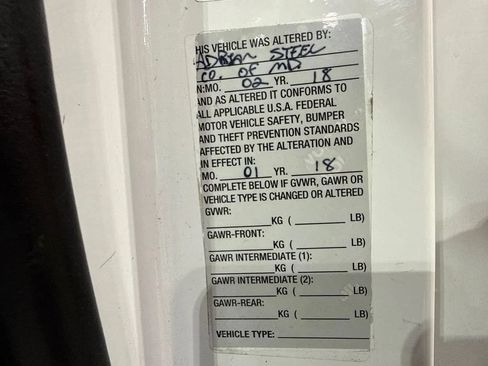 HIS VEHICLE WAS ALTERED BY:
ADRIAN STEEL
CO. OF MD
N:MO. 02 YR. 18
AND AS ALTERED IT CONFORMS TO
ALL APPLICABLE U.S.A. FEDERAL
MOTOR VEHICLE SAFETY, BUMPER
AND THEFT PREVENTION STANDARDS
AFFECTED BY THE ALTERATION AND
IN EFFECT IN:
MO. 01 YR. 18
COMPLETE BELOW IF GVWR, GAWR OR
VEHICLE TYPE IS CHANGED OR ALTERED
GVWR:
KG ( LB)
GAWR-FRONT:
KG ( LB)
GAWR INTERMEDIATE (1):
KG ( LB)
GAWR INTERMEDIATE (2):
KG ( LB)
GAWR-REAR:
KG ( LB)
VEHICLE TYPE: